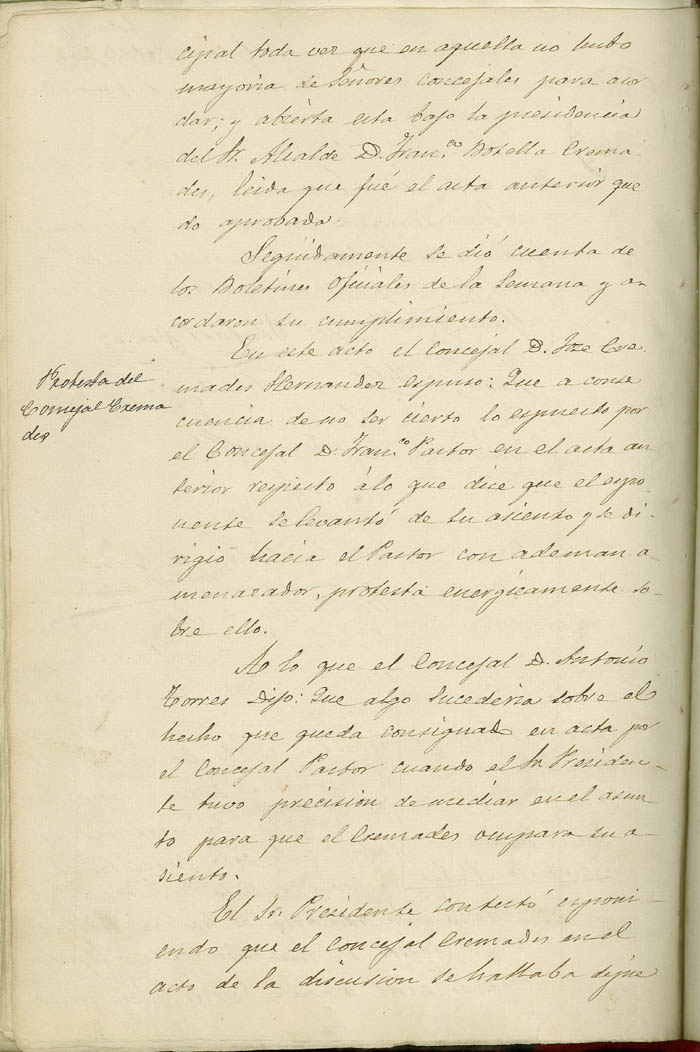 cipal toda vez que en aquella no hubo
mayoria de Señores concejales para acor
dar; y abierta esta bajo la presidencia
del Sr. Alcalde D. Fran.co Botella Crema
des, leida que fué el acta anterior que
do aprobada
Seguidamente se dió cuenta de
los Boletines Oficiales de la Semana y a-
cordaron su cumplimiento.
Protesta del
Concejal Crema
des
En este acto el Concejal D. Jose Cre
mades Hernandez espuso: Que a conse
cuencia de no ser cierto lo espuesto por
el Concejal D. Fran.co Pastor en el acta an
terior respecto á lo que dice que el espo-
nente se levantó de su asiento y se di-
rigió hacia el Pastor con ademan a
menazador, protesta energicamente so-
bre ello.
A lo que el Concejal D. Antonio
Torres Dijo: Que algo sucederia sobre el
hecho que queda consignado en acta por
el Concejal Pastor cuando el Sr. Presiden-
te tuvo precision de mediar en el asun
to para que el Cremades ocupara su a-
siento.
El Sr. Presidente contestó esponi-
endo que el Concejal Cremades en el
acto de la discusion se hallaba de pie